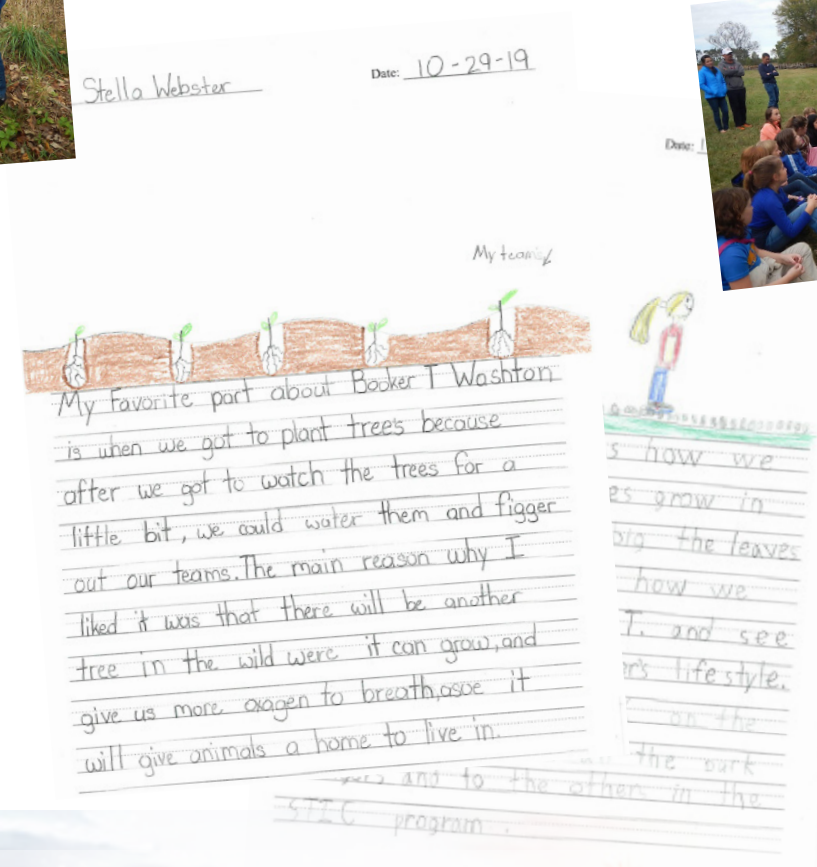 Stella Webster
Date: 10-29-19
Date:
My team's
My Favorite part about Booker T Washton
is when we got to plant trees because
after we got to watch the trees for a
little bit, we could water them and figger
out our teams. The main reason why I
liked it was that there will be another
tree in the wild were it can grow, and
give us more oxagen to breath, asoe it
will give animals a home to live in.
s how we
es grow in
the leaves
how we
T. and see
er's lifestyle.
on the
the
and to the others in the
STIC program.